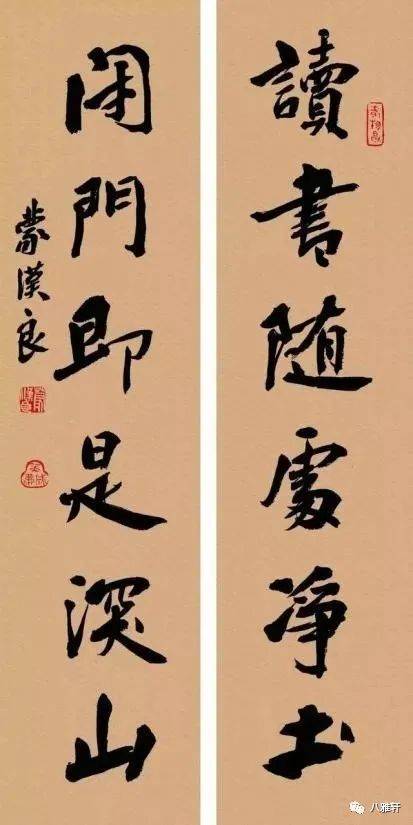 讀書隨處淨土
閉門即是深山
蒙漢良
八雅轩